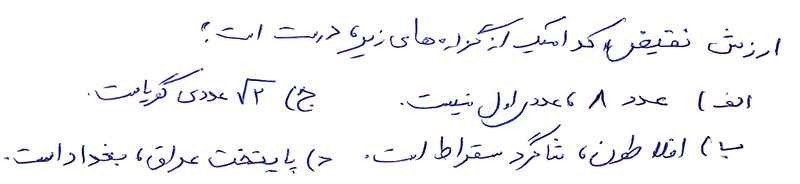 ارزش نقیض کدامیک از گزاره‌های زیر، درست است؟
الف) عدد ۸، عددی اول نیست. ج) √۲ عددی گویاست.
ب) افلاطون، شاگرد سقراط است. د) پایتخت عراق، بغداد است.